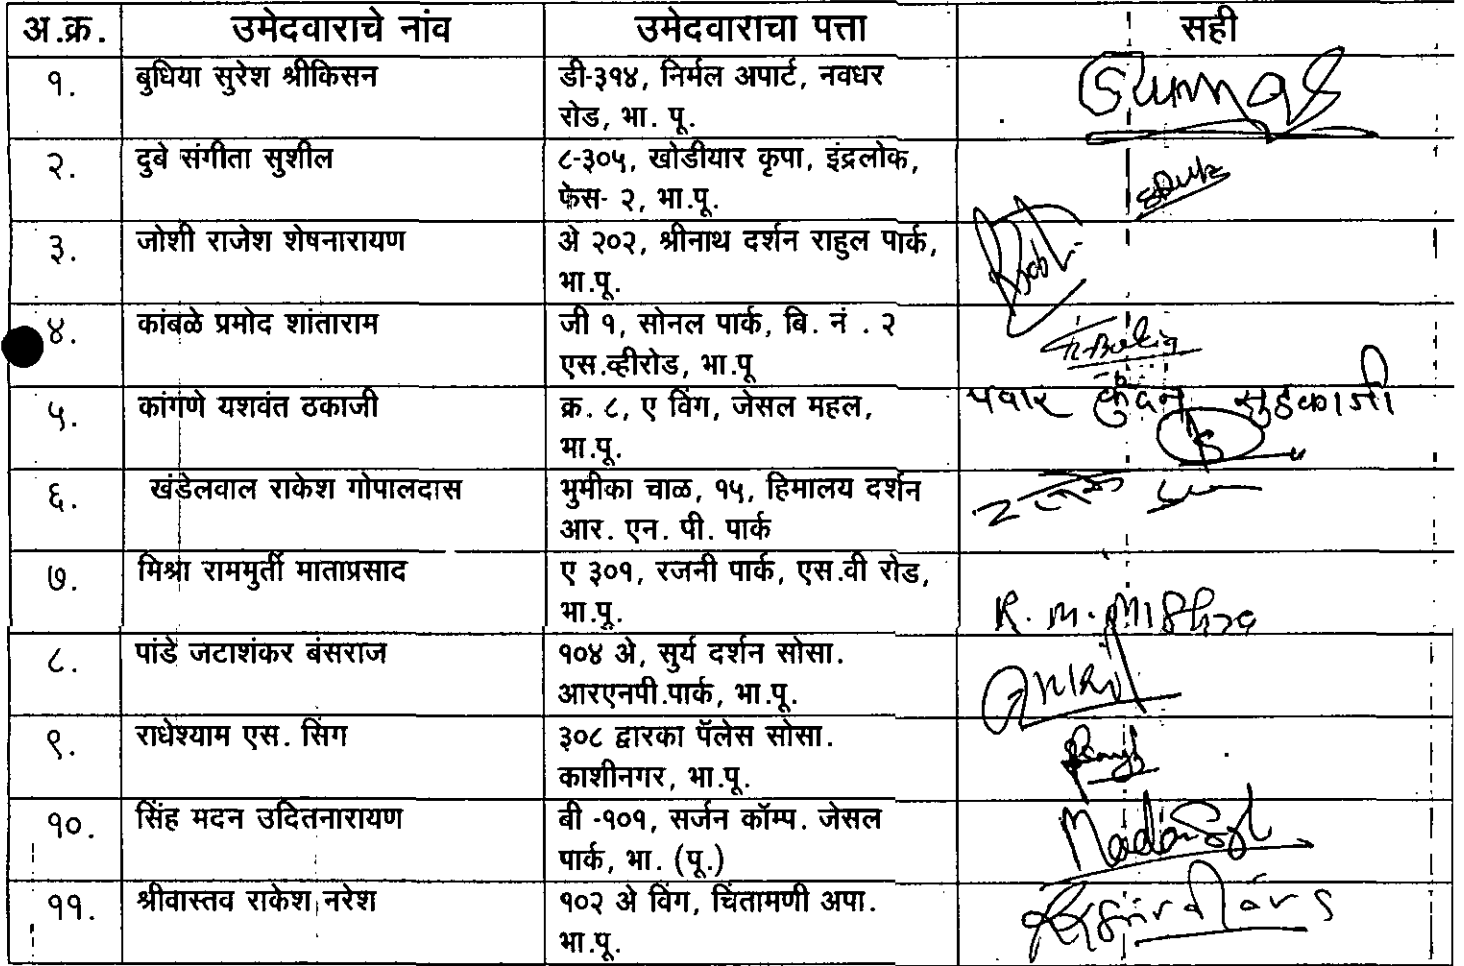 अ.क्र. उमेदवाराचे नांव उमेदवाराचा पत्ता सही
१. बुधिया सुरेश श्रीकिसन डी-३१४, निर्मल अपार्ट, नवधर
रोड, भा. पू.
२. दुबे संगीता सुशील ८-३०५, खोडीयार कृपा, इंद्रलोक,
फेस- २, भा.पू.
३. जोशी राजेश शेषनारायण अे २०२, श्रीनाथ दर्शन राहुल पार्क,
भा.पू.
४. कांबळे प्रमोद शांताराम जी १, सोनल पार्क, बि. नं . २
एस.व्हीरोड, भा.पू
५. कांगणे यशवंत ठकाजी क्र. ८, ए विंग, जेसल महल, पवार कुंदन
भा.पू.
६. खंडेलवाल राकेश गोपालदास भुमीका चाळ, १५, हिमालय दर्शन
आर. एन. पी. पार्क
७. मिश्रा राममुर्ती माताप्रसाद ए ३०१, रजनी पार्क, एस.वी रोड,
भा.पू. R. M. Mishra
८. पांडे जटाशंकर बंसराज १०४ अे, सुर्य दर्शन सोसा.
आरएनपी.पार्क, भा.पू.
९. राधेश्याम एस. सिंग ३०८ द्वारका पॅलेस सोसा.
काशीनगर, भा.पू.
१०. सिंह मदन उदितनारायण बी -१०१, सर्जन कॉम्प. जेसल
पार्क, भा. (पू.)
११. श्रीवास्तव राकेश नरेश १०२ अे विंग, चिंतामणी अपा.
भा.पू.